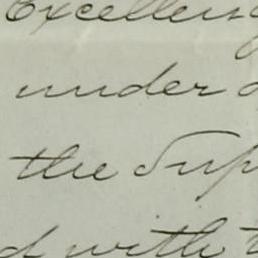 Excellen
under
the Sup
d with t